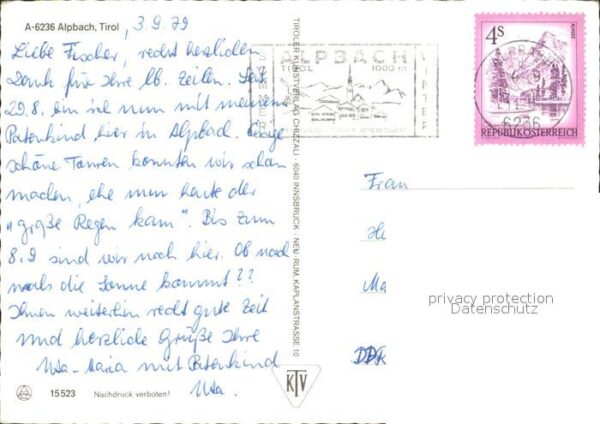 A-6236 Alpbach, Tirol
3.9.79
Liebe Fischer, recht herzlichen
Dank für Ihre lb. Zeilen. Seit
29.8. bin ich nun mit meinem
Patenkind hier in Alpbach. Einige
schöne Touren konnten wir schon
machen, ehe nun heute der
"große Regen kam". Bis zum
8.9 sind wir noch hier. Ob noch
mals die Sonne kommt??
Ihnen weiterhin recht gute Zeit
und herzliche Grüße Ihre
Uta-Maria mit Patenkind
Uta.
15523 Nachdruck verboten!
TIROLER KUNSTVERLAG CHIZZALI · 6040 INNSBRUCK - NEU-RUM, KAPLANSTRASSE 10
KTV
ALPBACH
TIROL 1000 m
SOMMER
WINTER
4S
REPUBLIK ÖSTERREICH
6236
Frau
He
Ma
DDR
privacy protection
Datenschutz